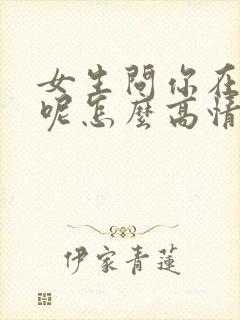 女生問你在
呢怎麼高情
伊家青蓮